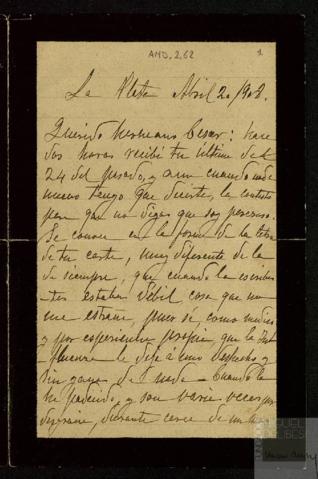 AMD, 2, 62
1
La Plata Abril 20/908.
Querido hermano Cesar: hace
dos horas recibí tu última del
24 del pasado, y aun cuando nada
nuevo tengo que decirte, la contesto
para que no digas que soy perezoso.
Se conoce en la forma de la letra
de tu carta, muy diferente de la
de siempre, que cuando la escribis-
tes estabas débil, cosa que no
me extraña, pues se como médico
y por experiencia propia que la
le deja á uno
sin ganas de nada. Cuando la
he padecido, y son varias veces por
desgracia, durante cerca de un
MIGUEL
DELIBES